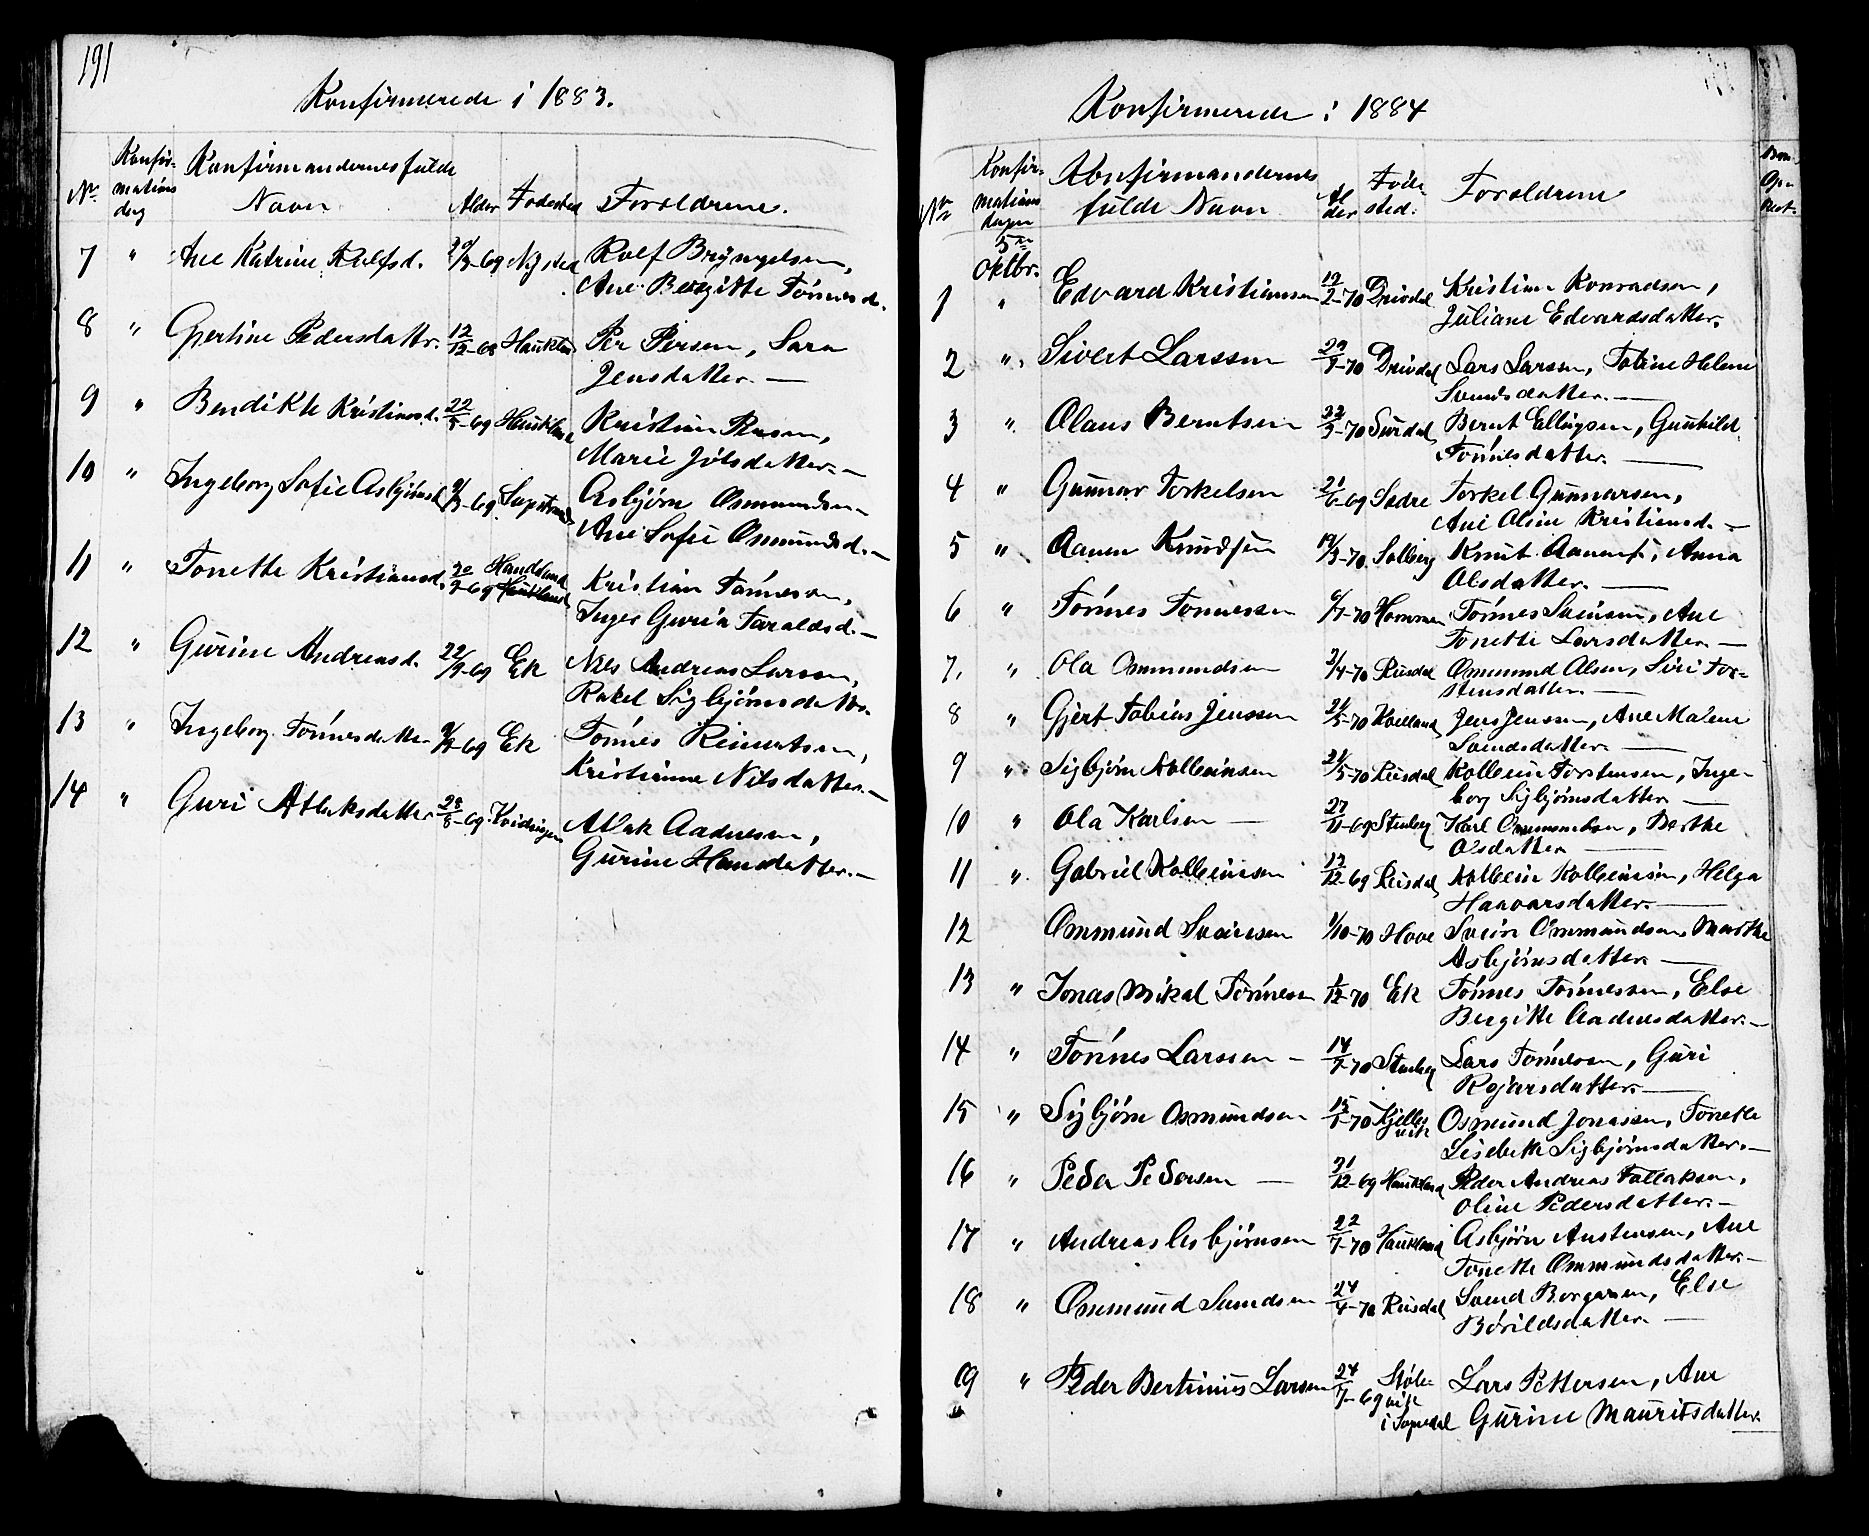 191
Konfirmerede i 1883.
No. Konfirmations dag Konfirmandernes fulde Navn Alder Fodested Foroldrene.
7 " Ane Katrine Rolfsd. 69 Rolf Bryngelsen,
Ane Bergitte Tónnesd.
8 " Gjertine Pedersdattr. 12/12-68 Haukland Per Persen, Sara
Jensdatter. —
9 " Bendikte Kristiansd. 69 Haukland Kristian Persen,
Marie Jólsdatter. —
10 " Ingeborg Sofie Asbjörnsd. 69 Asbjörn Osmundsen
Ane Sofie Osmundsd. —
11 " Tonette Kristiansd. 69 Handeland Haukland Kristian Tónnesen,
Inger Guria Taraldsd. —
12 " Gurine Andreasd. 69 Ek Nils Andreas Larsen,
Rakel Sigbjörnsdattr.
13 " Ingeborg Tónnesdatter 69 Ek Tónnes Reinertsen,
Kristianne Nilsdatter. —
14 " Guri Atlaksdatter 23/8-69 Kvidingen Atlak Aadnesen,
Gurine Hansdatter. —
Konfirmerede i 1884
No. Konfirmations dagen Konfirmandernes fulde Navn Alder Fódested. Foroldrene
5te
Oktbr.
1 " Edvard Kristiansen 12/2-70 Drivdal Kristian Konradsen,
Juliane Edvardsdatter.
2 " Sivert Larssen 70 Drivdal Lars Larsen, Tobine Helene
Svendsdatter. —
3 " Olaus Berntsen 70 Surdal Bernt Ellingsen, Gunhild
Tónnesdatter. —
4 " Gunnar Torkelsen 21/6-69 Sadre Torkel Gunnarsen,
Ane Olsine Kristiansd. —
5 " Aanen Knudsen 70 Solberg Knut Aanens., Anna
Olsdatter. —
6 " Tónnes Tonnessen 70 Hammer Tónnes Sveinsen, Ane
Tonette Larsdatter. —
7. " Ola Ommundsen 4-70 Reisdal Ommund Olsen, Siri Tor-
stensdatter. —
8 " Gjert Tobias Jenssen 5-70 Jens Jenssen, Ane Malene
Svendsdatter. —
9 " Sigbjörn Kolbeinsen 5-70 Reisdal Kolbein Torstensen, Inge-
borg Sigbjörnsdatter —
10 " Ola Karlsen — 27/11-69 Stenberg Karl Ommundsen, Berthe
Olsdatter —
11 " Gabriel Kolbeinsen 12-69 Reisdal Kolbein Kolbeinsen, Helga
Haavarsdatter. —
12 Ommund Sveinsen 1/10-70 Hove Svein Ommundsen, Marthe
Asbjörnsdatter. —
13 " Jonas Mikal Tónnesen 1/12-70 Ek Tónnes Tónnessen, Else
Bergitte Aadnesdatter. —
14 " Tónnes Larssen — 14/7-70 Stenberg Lars Tónnesen, Guri
Rejarsdatter. —
15 " Sigbjörn Osmundsen 70 Kjellesvik Osmund Jonassen, Tonette
Lisebeth Sigbjörnsdatter. —
16 " Peder Pedersen — 31/12-69 Haukland Peder Andreas Tollaksen,
Oline Pedersdatter. —
17 " Andreas Asbjörnsen 22/7-70 Haukland Asbjörn Austensen, Ane
Tonette Ommundsdatter. —
18 " Ommund Svendsen 24/4-70 Reisdal Svend Borgersen, Else
Bórildsdatter. —
19 " Peder Bertinius Larsen 24/7-69 Lars Pettersen, Ane
Gurine Mauritsdatter.